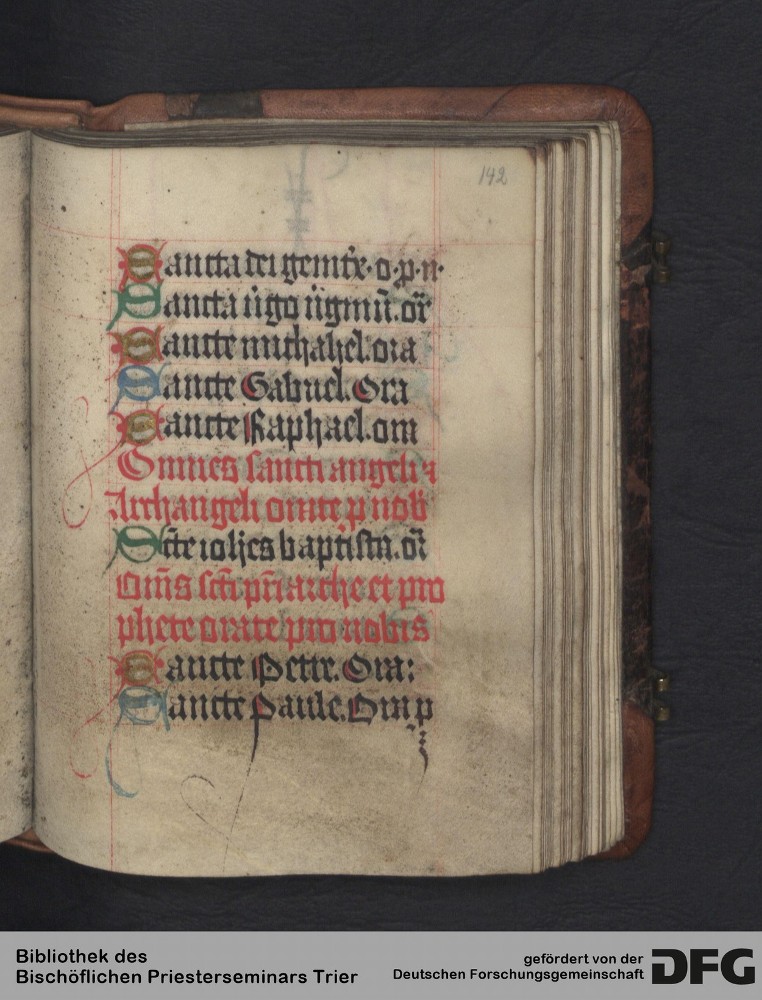 142
Sancta dei genitx·o·p·n·
Sancta ūgo ūgınū. or̄
Sancte michahel. ora
Sancte Gabriel. Ora
Sancte Raphael. om
Omnes sancti angeli ⁊
Archangeli orate p nob
Sc̄te iohēs baptista. or̄
Om̄s sc̄ti pr̄iarche et pro
phete orate pro nobis
Sancte Petre. Ora:
Sancte Paule. Om p
Bibliothek des
Bischöflichen Priesterseminars Trier
gefördert von der
Deutschen Forschungsgemeinschaft
DFG